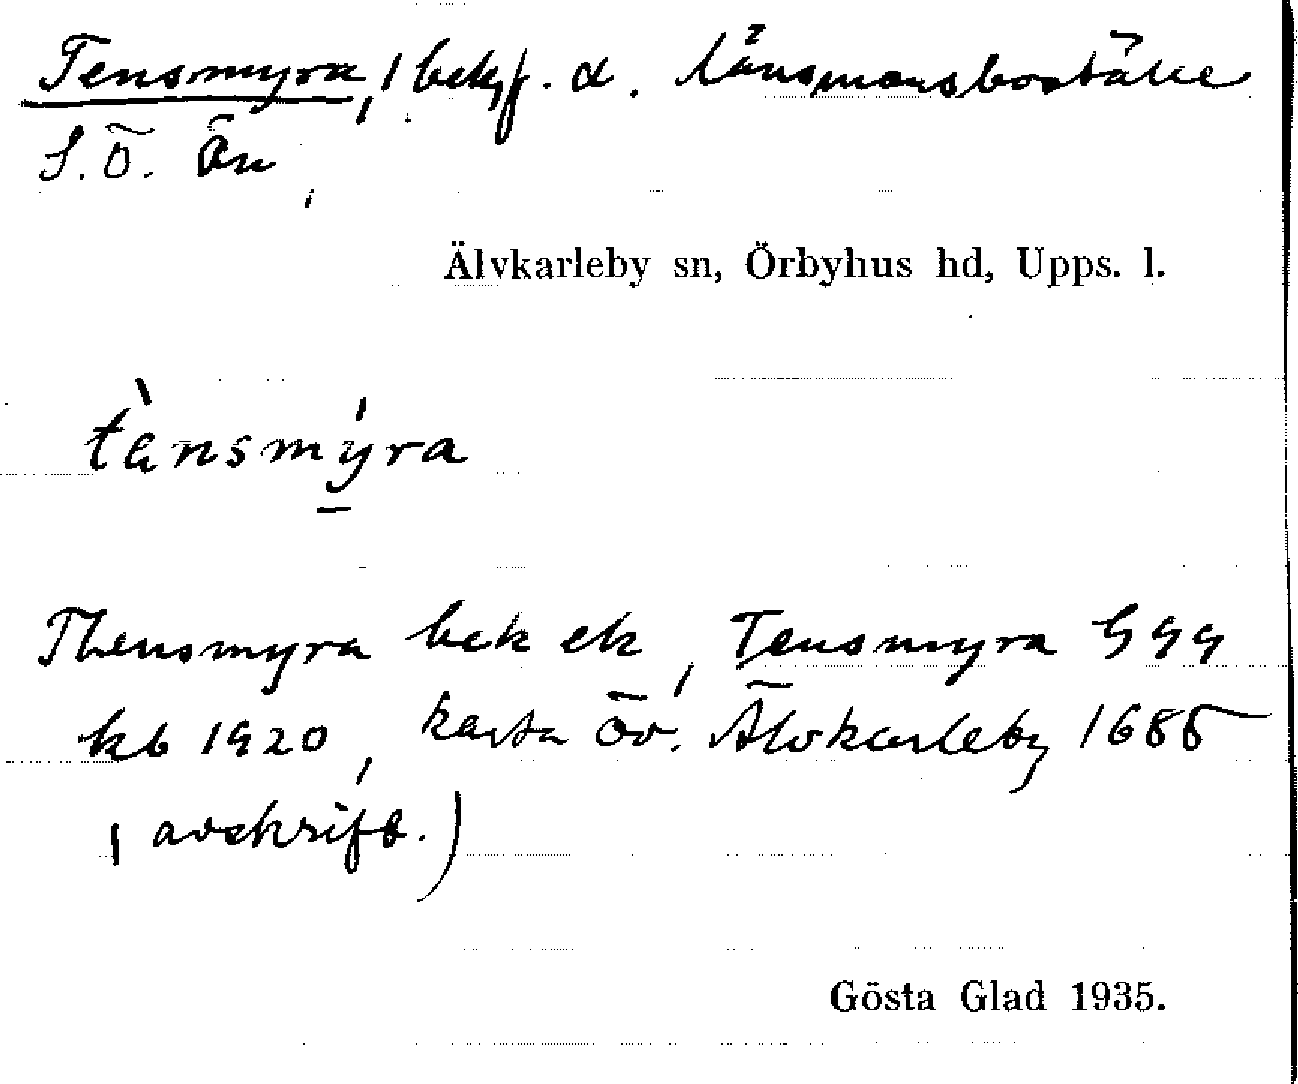 Tensmyra, 1 bekf. d. länsmansboställe
S. Ö. Ön,
Älvkarleby sn, Örbyhus hd, Upps. l.
tènsmýra
Thensmyra bek ek, Tensmyra Ggg
kb 1920, karta öv. Älvkarleby 1686
(avskrift.)
Gösta Glad 1935.